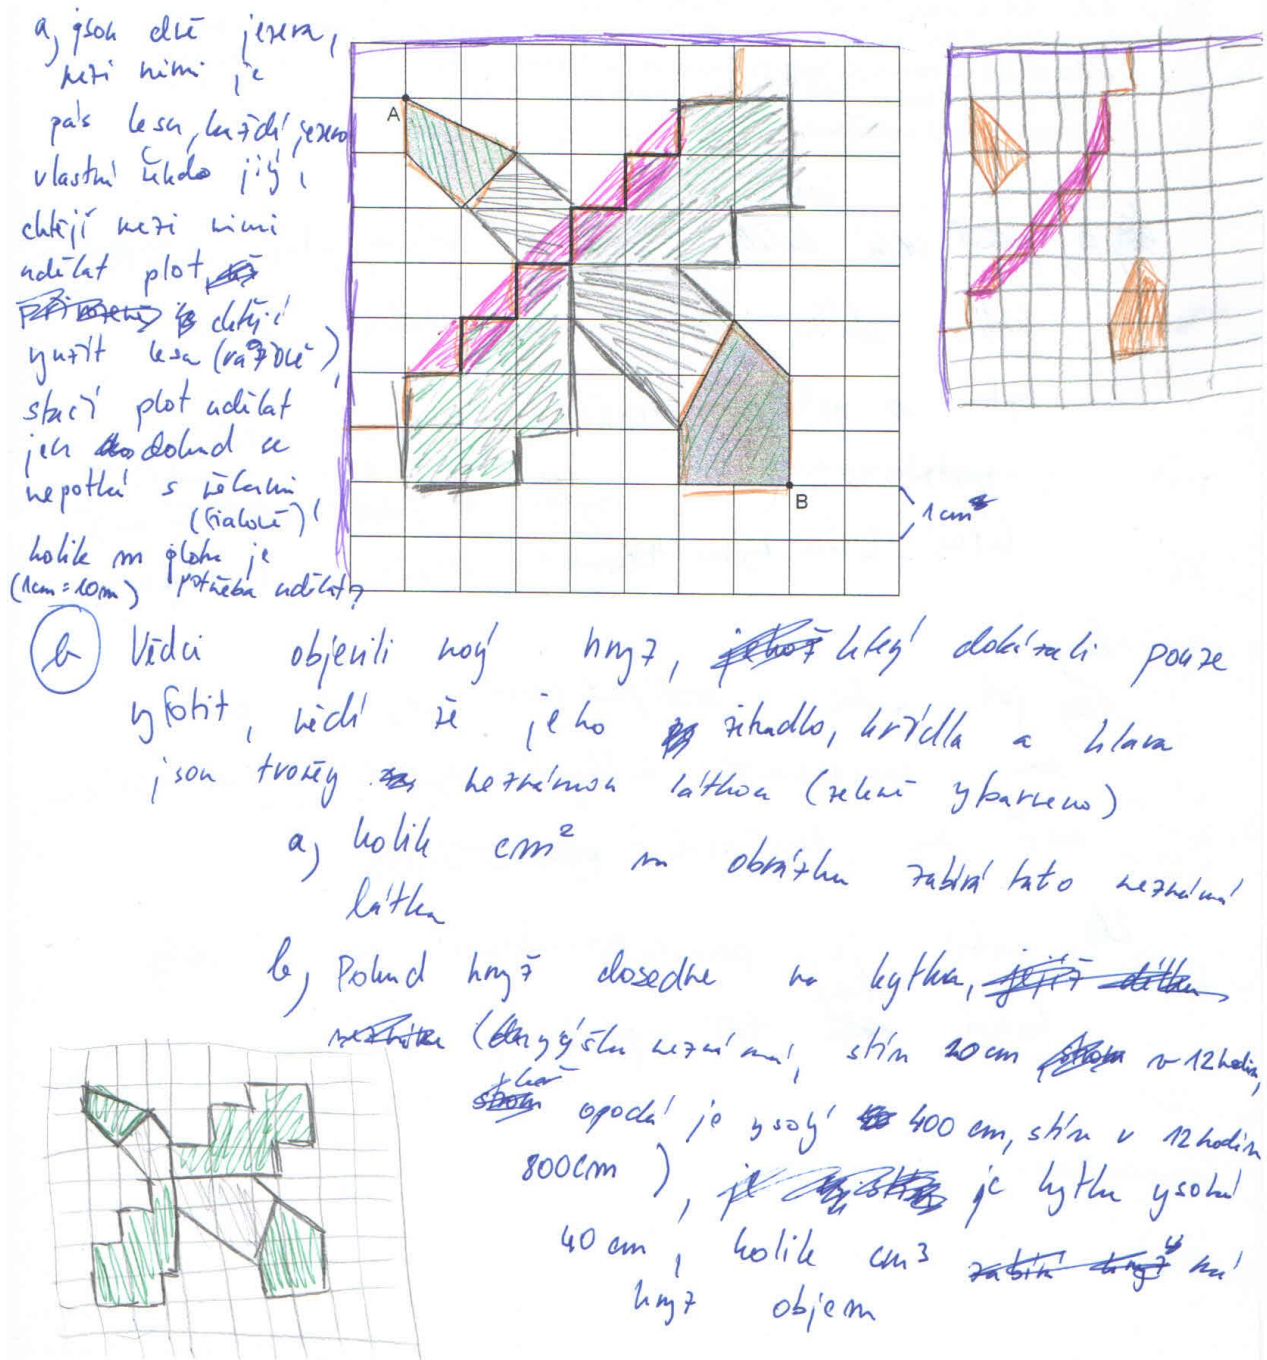 a, jsou dvě jezera,
mezi nimi je
pás lesa, každí jezero
vlastní někdo jiý,
chtějí mezi nimi
udělat plot
chtějí
využít lesa (růžově),
stačí plot udělat
jen dokud se
nepotká s řekami
(fialově)
kolik m plotu je
(1cm = 10m) potřeba udělat?
A
B
1 cm
b Vědci objevili nový hmyz, který dokázali pouze
vyfotit, vědí že jeho žihadlo, křídla a hlava
jsou tvořeny neznámou látkou (zeleně vybarveno)
a, kolik cm² na obrázku zabírá tato neznámá
látka
b, Pokud hmyz dosedne na kytku,
výška neznámá, stín 20 cm v 12 hodin,
keř opodál je vysoký 400 cm, stín v 12 hodin
800cm ), je kytka vysoká
40 cm, kolik cm³ má
hmyz objem